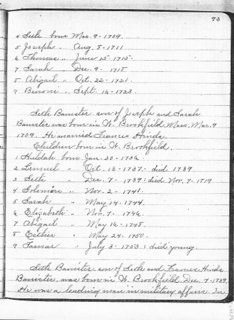 4 Seth born Mar. 9 - 1709.
5 Joseph " Aug. 5 - 1711.
6 Thomas " June 15 - 1715.
7 Sarah " Dec. 9 - 1718.
8 Abigail " Oct. 22 - 1721.
9 Sept. 12 - 1723.
Seth Banister son of Joseph and Sarah
Banister was born in W. Brookfield Mass. Mar. 9
1709. He married Frances Hinds.
Children born in W. Brookfield.
1 Huldah born Jan. 20 - 1736.
2 Lemuel " Oct. 12 - 1737 - died 1789
3 Seth " Dec. 7 - 1739 : died Nov. 7 - 1819
4 Solomon " Nov. 2 - 1741.
5 Sarah " May 14 - 1744.
6 Elizabeth " Nov. 7 - 1746.
7 Abigail " May 16 - 1748.
8 Esther " May 24 - 1750.
9 July 8 - 1753 : died young.
Seth Banister son of Seth and Frances Hinds
Banister was born in W. Brookfield Dec. 7 - 1739.
He was a leading man in military affairs. In